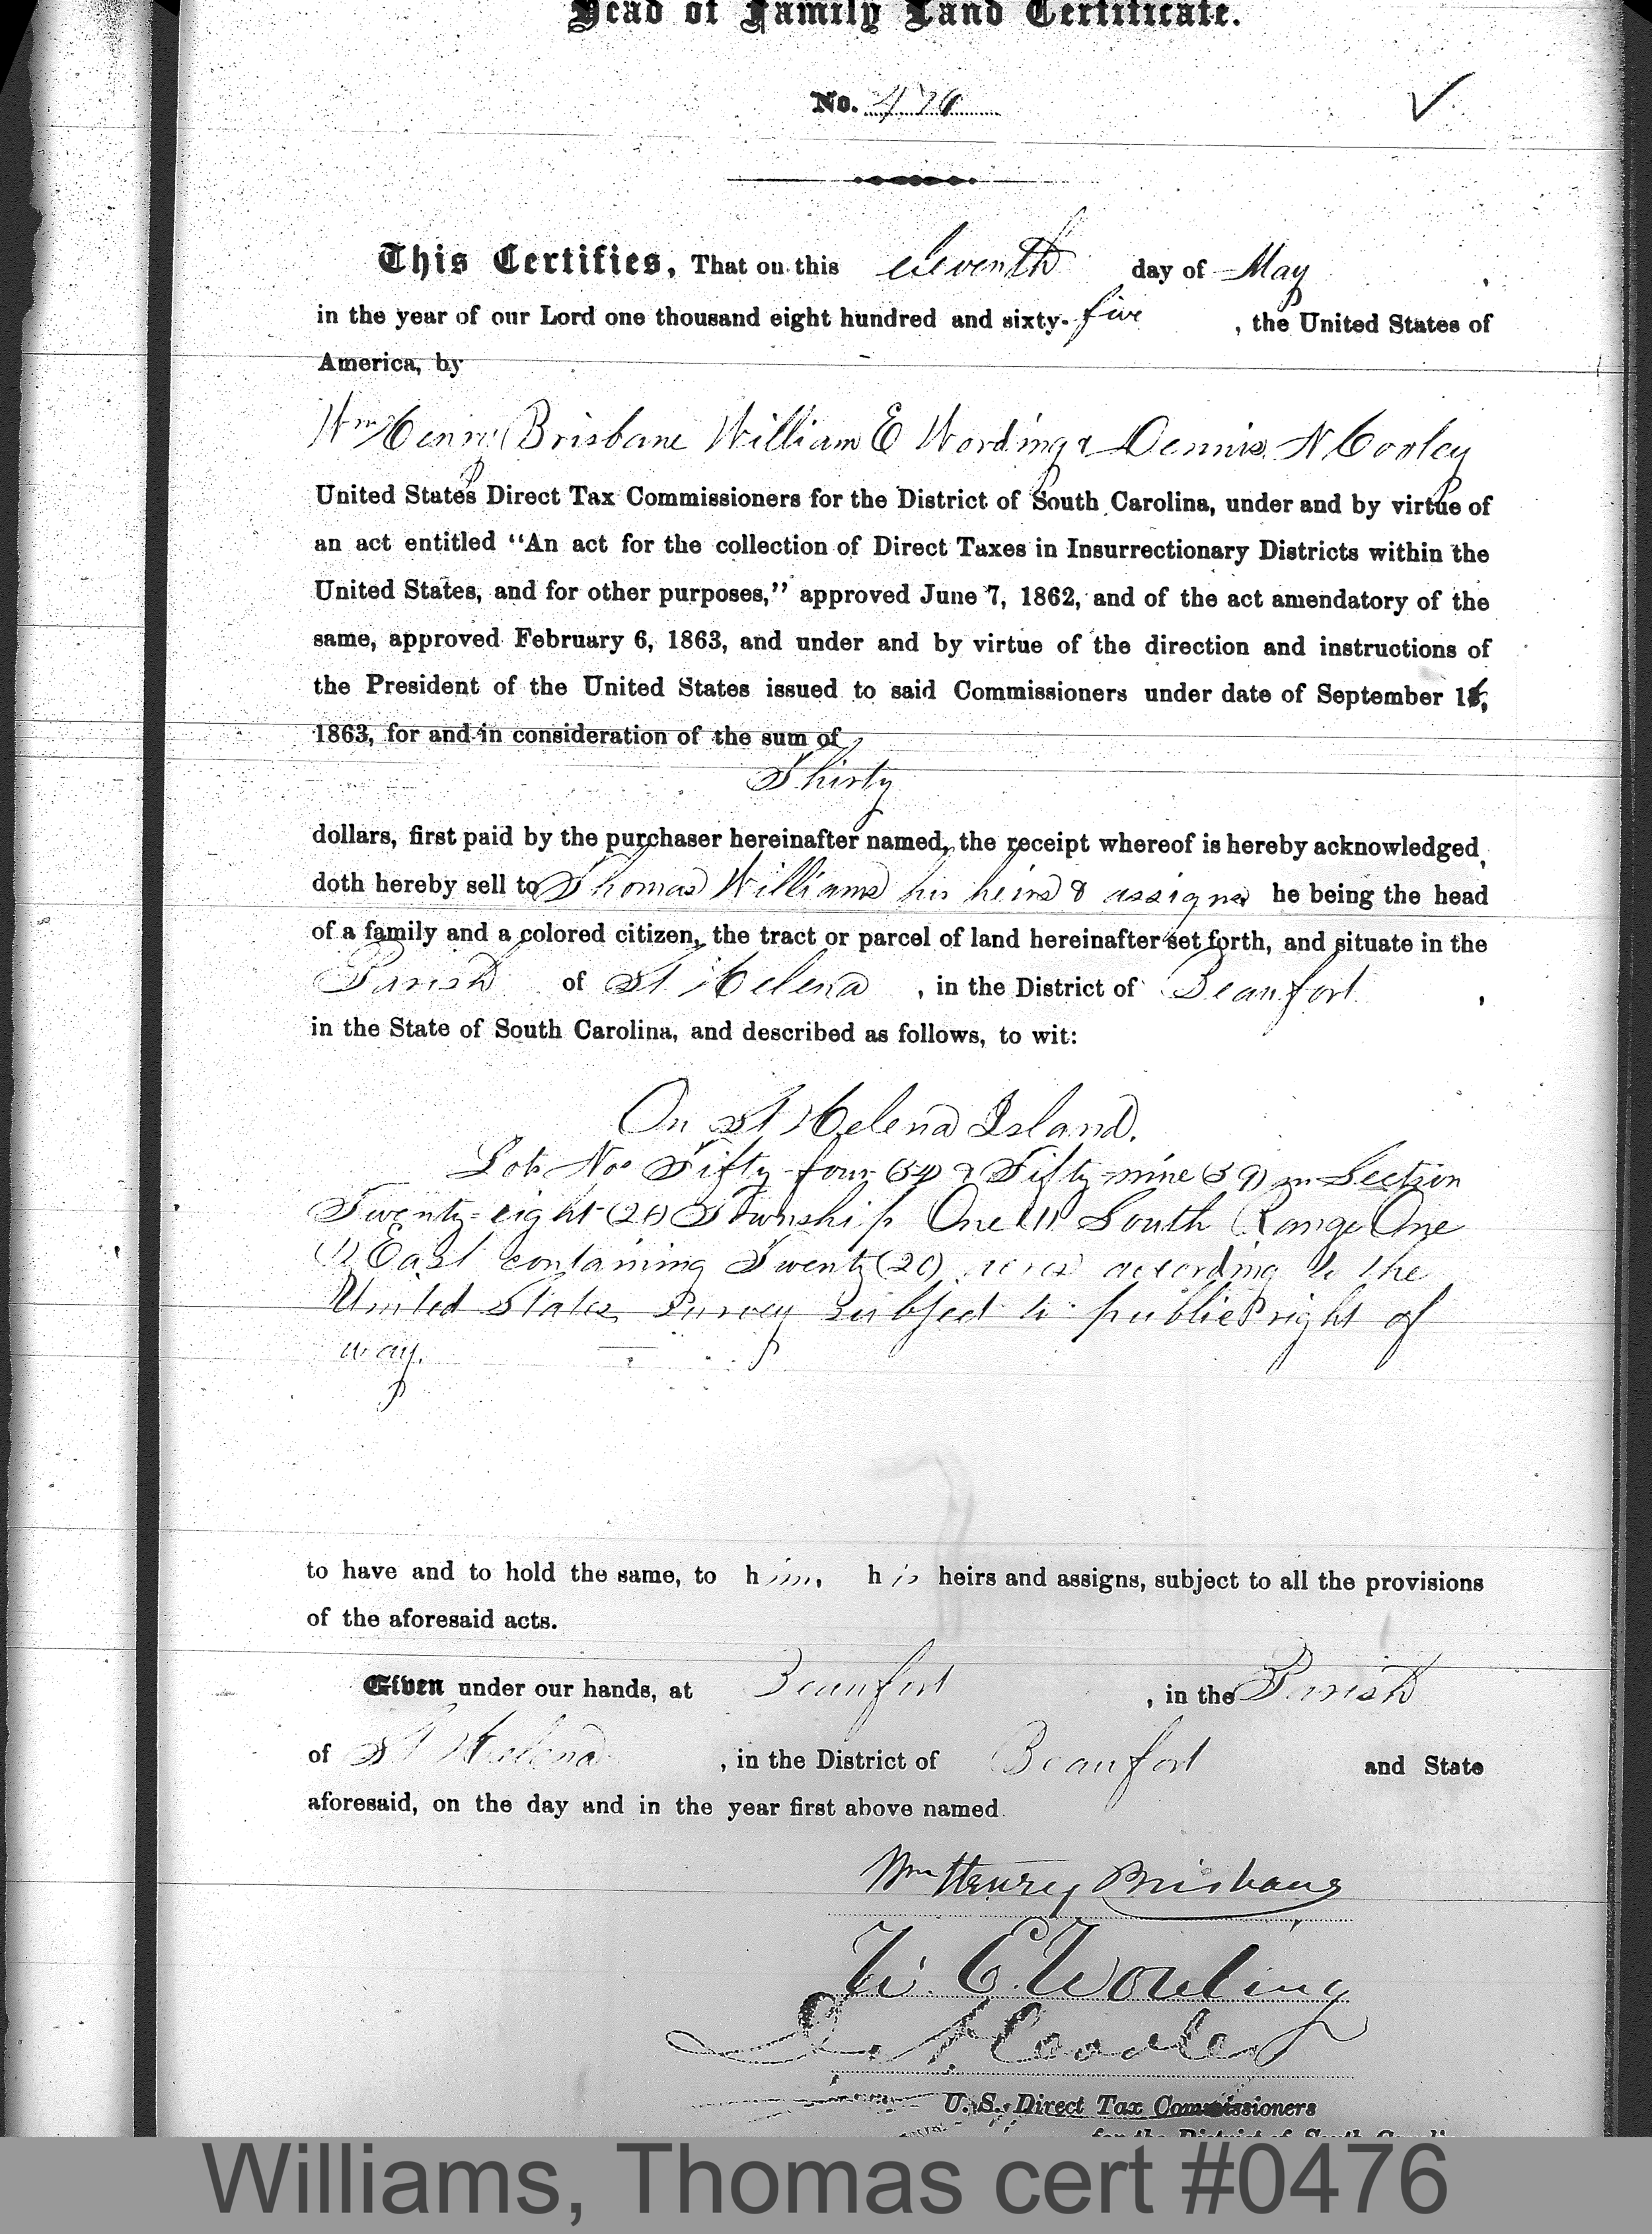 Head of Family Land Certificate.
No. 476
This Certifies, That on this eleventh day of May ,
in the year of our Lord one thousand eight hundred and sixty-five , the United States of
America, by
Wm Henry Brisbane William E Wording & Dennis N Cooley
United States Direct Tax Commissioners for the District of South Carolina, under and by virtue of
an act entitled “An act for the collection of Direct Taxes in Insurrectionary Districts within the
United States, and for other purposes,” approved June 7, 1862, and of the act amendatory of the
same, approved February 6, 1863, and under and by virtue of the direction and instructions of
the President of the United States issued to said Commissioners under date of September 16,
1863, for and in consideration of the sum of
Thirty
dollars, first paid by the purchaser hereinafter named, the receipt whereof is hereby acknowledged,
doth hereby sell to Thomas Williams his heirs & assigns he being the head
of a family and a colored citizen, the tract or parcel of land hereinafter set forth, and situate in the
Parish of St Helena , in the District of Beaufort ,
in the State of South Carolina, and described as follows, to wit:
On St Helena Island.
Lots Nos Fifty-four (54) & Fifty-nine (59) in Section
Twenty-eight (28) Township One (1) South Range One
(1) East containing Twenty (20) acres according to the
United States Survey subject to public right of
way.
to have and to hold the same, to him, his heirs and assigns, subject to all the provisions
of the aforesaid acts.
Given under our hands, at Beaufort , in the Parish
of St Helena , in the District of Beaufort and State
aforesaid, on the day and in the year first above named.
Wm Henry Brisbane
W. E. Wording
D. N. Cooley
U. S. Direct Tax Commissioners
for the District of South Carolina
Williams, Thomas cert #0476